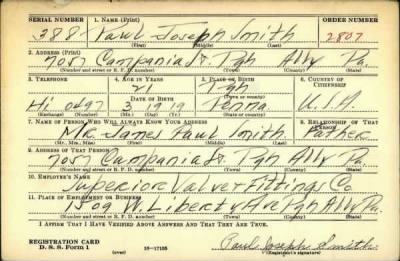 SERIAL NUMBER 1. NAME (Print) ORDER NUMBER
388 Paul Joseph Smith 2807
(First) (Middle) (Last)
2. ADDRESS (Print)
7057 Campania St. Pgh Ally Pa.
(Number and street or R. F. D. number) (Town) (County) (State)
3. TELEPHONE 4. AGE IN YEARS 5. PLACE OF BIRTH 6. COUNTRY OF CITIZENSHIP
21 Pgh
(Town or county)
Hi 0497 DATE OF BIRTH Penna. U.S.A.
3 1919
(Exchange) (Number) (Mo.) (Day) (Yr.) (State or country)
7. NAME OF PERSON WHO WILL ALWAYS KNOW YOUR ADDRESS 8. RELATIONSHIP OF THAT PERSON
Mr. James Paul Smith Father
(Mr., Mrs., Miss) (First) (Middle) (Last)
9. ADDRESS OF THAT PERSON
7057 Campania St. Pgh Ally Pa.
(Number and street or R. F. D. number) (Town) (County) (State)
10. EMPLOYER'S NAME
Superior Valve & Fittings Co
11. PLACE OF EMPLOYMENT OR BUSINESS
1509 W. Liberty Ave Pgh Ally Pa.
(Number and street or R. F. D. number) (Town) (County) (State)
I AFFIRM THAT I HAVE VERIFIED ABOVE ANSWERS AND THAT THEY ARE TRUE.
REGISTRATION CARD
D. S. S. Form 1 (over) 16—17105
Paul Joseph Smith
(Registrant's signature)